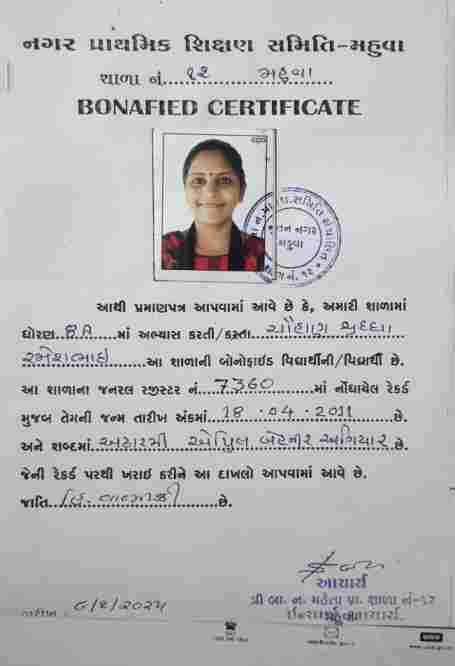 નગર પ્રાથમિક શિક્ષણ સમિતિ-મહુવા
શાળા નં. ૧૨ મહુવા
BONAFIED CERTIFICATE
આથી પ્રમાણપત્ર આપવામાં આવે છે કે, અમારી શાળામાં
ધોરણ 8A માં અભ્યાસ કરતી/કરતા ચૌહાણ
રમેશભાઇ આ શાળાની બોનોફાઇડ વિદ્યાર્થીની/વિદ્યાર્થી છે.
આ શાળાના જનરલ રજીસ્ટર નં. 7360 માં નોંધાયેલ રેકર્ડ
મુજબ તેમની જન્મ તારીખ અંકમાં 18.04.2011 છે.
અને શબ્દમાં અઢારમી એપ્રિલ બેહજાર અગિયાર છે.
જેની રેકર્ડ પરથી ખરાઇ કરીને આ દાખલો આપવામાં આવે છે.
જાતિ હિ. વાલ્મીકી છે.
આચાર્ય
શ્રી બા. ન. મહેતા પ્રા. શાળા નં-૧૨
ઈન્ચાર્જ આચાર્ય
મહુવા
તારીખ